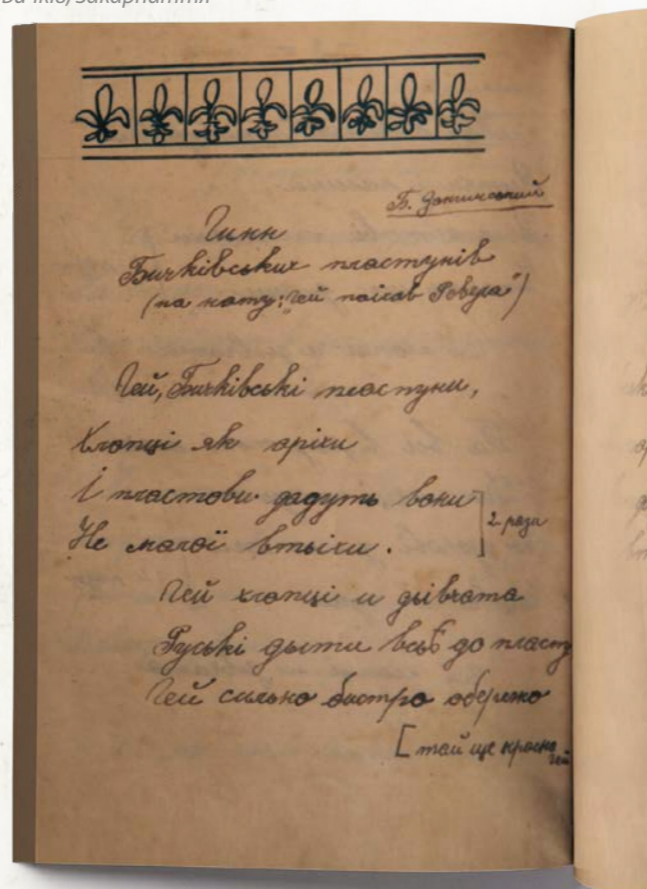 Б. Заминський
Гимн
Бичківських пластунів
(на ноту: „Гей поїхав Ревера")
Гей, Бичківські пластуни,
Хлопці як оріхи
І пластови дадуть вони
Не малої втьіхи. ] 2 рази
Гей хлопці и дьівчата
Руські дьіти всьі до пласту
Гей сильно бистро обережно
[ тай ще красно
гей